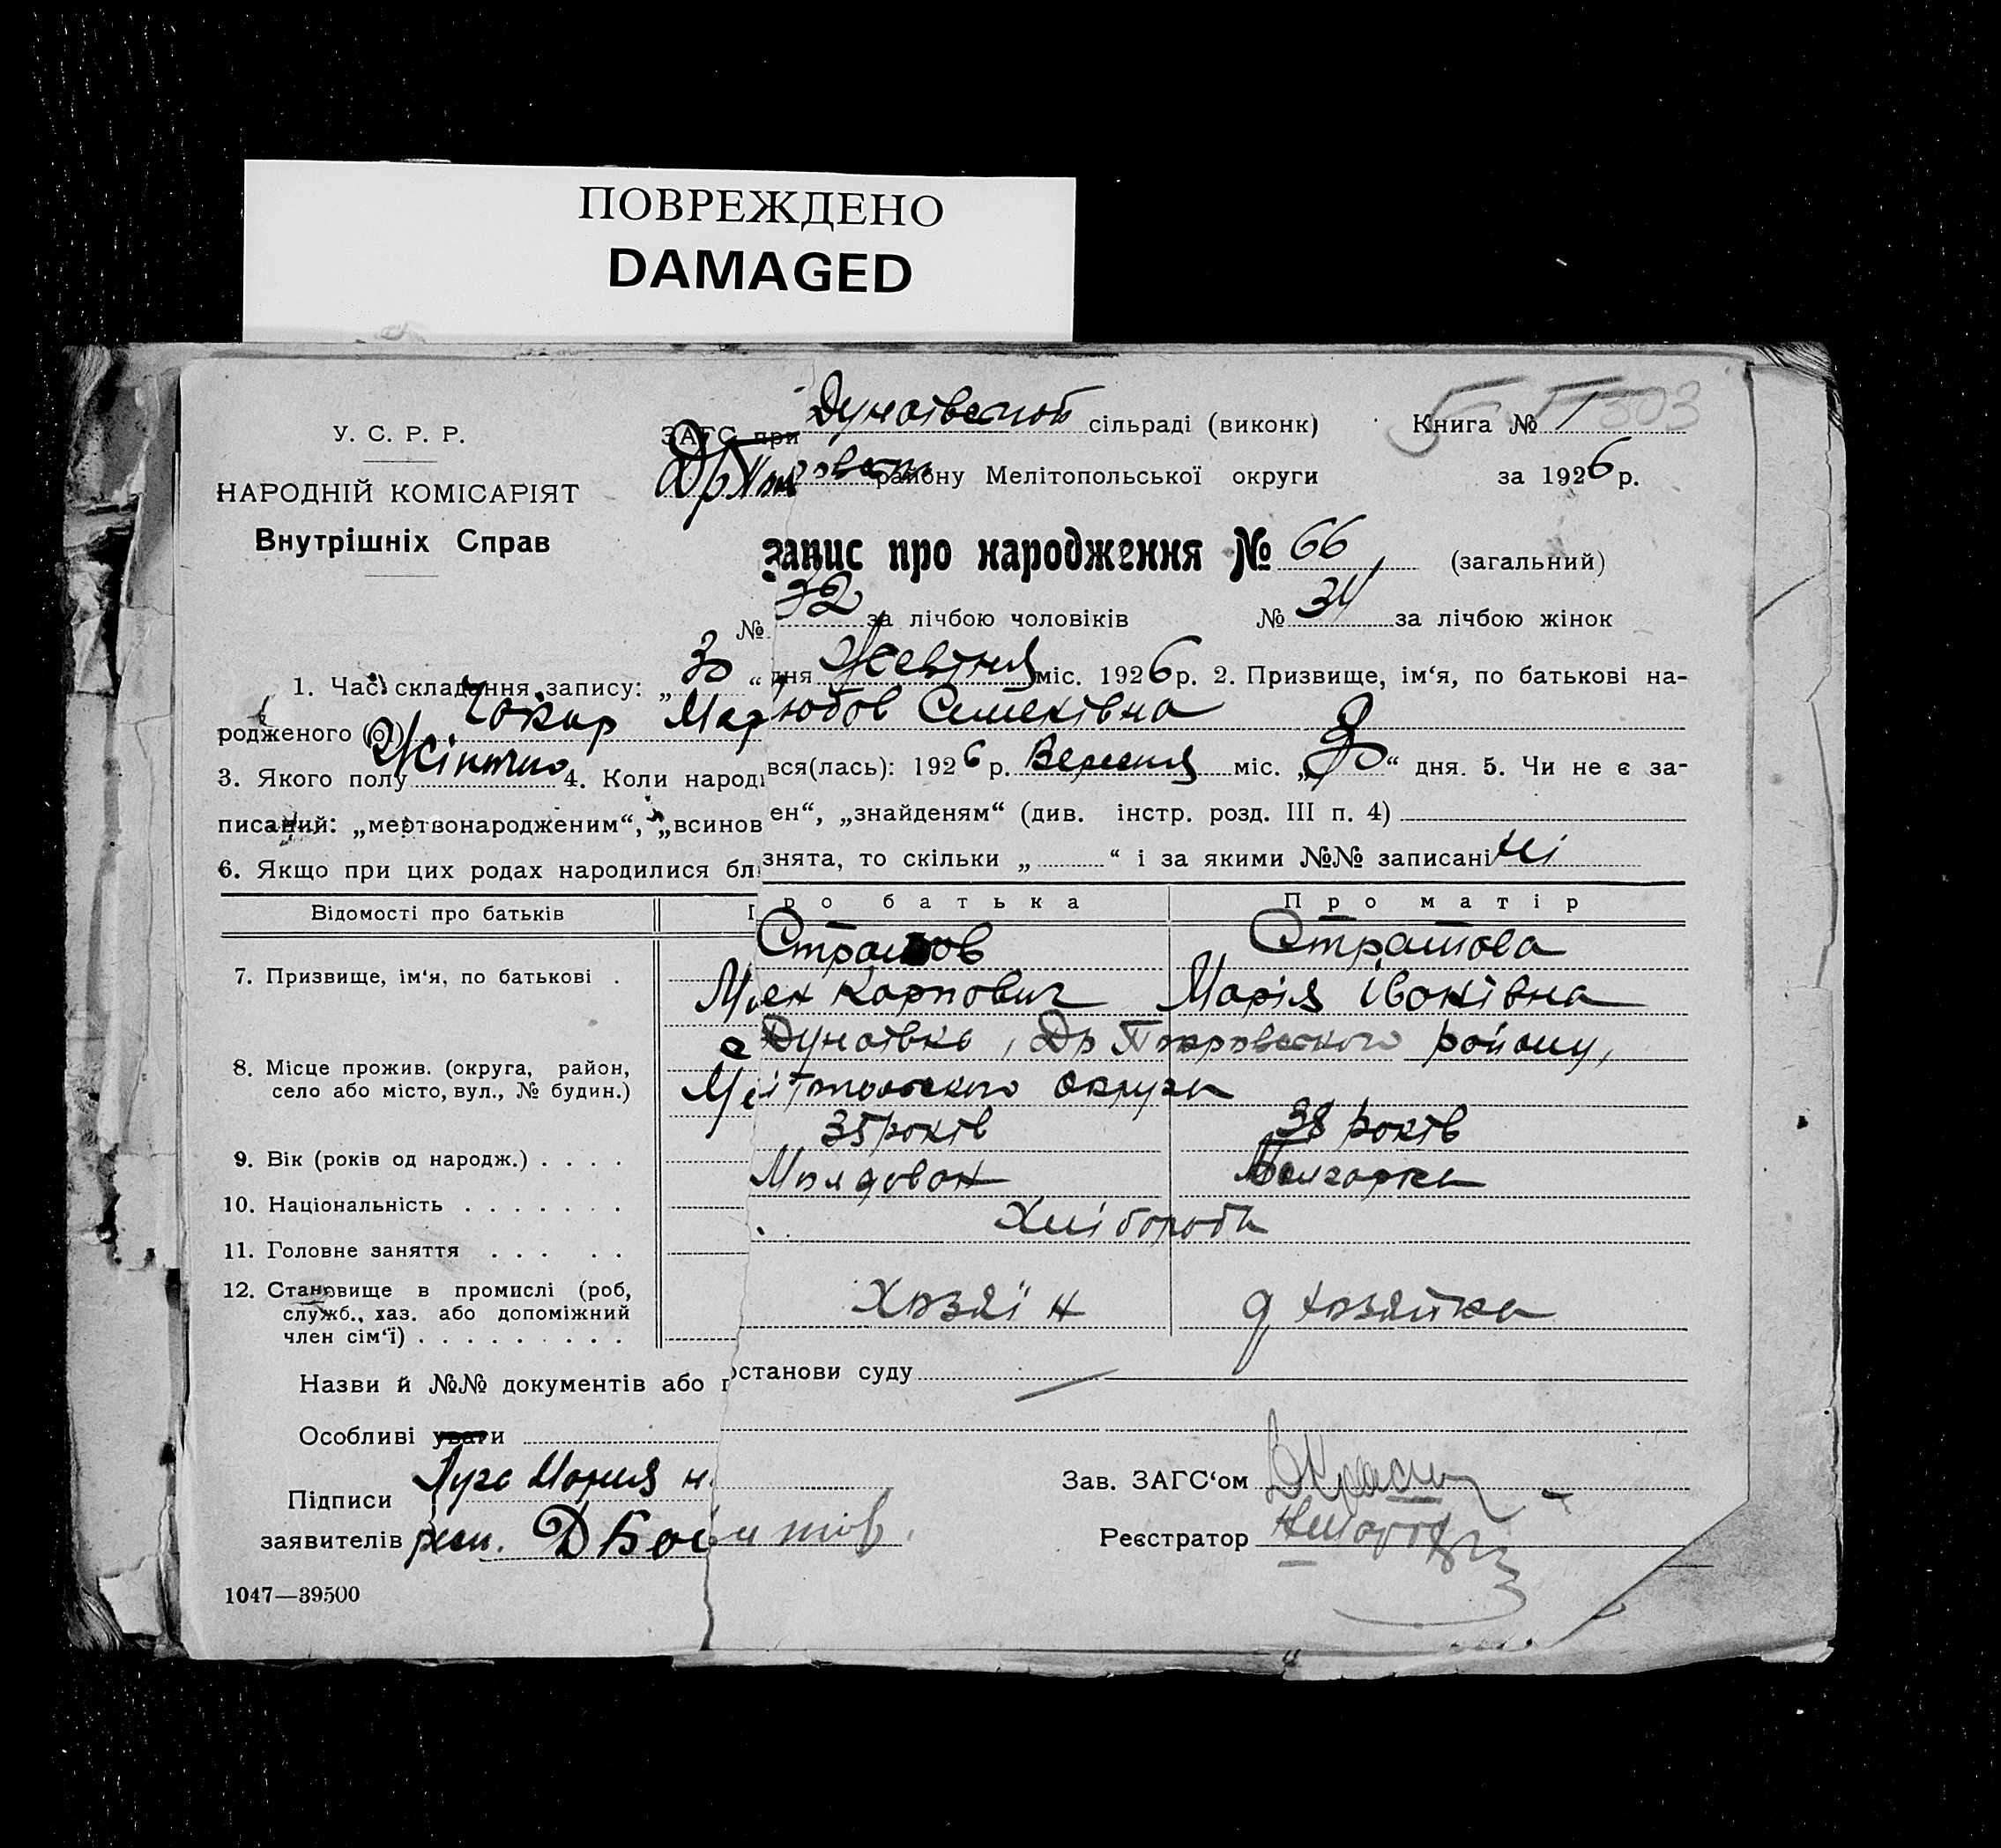 ПОВРЕЖДЕНО
DAMAGED
У. С. Р. Р.
НАРОДНІЙ КОМІСАРІЯТ
Внутрішніх Справ
ЗАГС при сільраді (виконк) Книга № 1
району Мелітопольської округи за 1926 р.
запис про народження № 66 (загальний)
№ 32 за лічбою чоловіків № 34 за лічбою жінок
1. Час складання запису: „30“ дня Жевтня міс. 1926 р. 2. Призвище, ім‘я, по батькові на-
родженого (ої) Чакир Мар юбов Семенівна
3. Якого полу Жіночио 4. Коли народи вся(лась): 1926 р. Вересня міс. „ “ дня. 5. Чи не є за-
писаний: „мертвонародженим“, „всинов ен“, „знайденям“ (див. інстр. розд. III п. 4)
6. Якщо при цих родах народилися бли знята, то скільки „ “ і за якими №№ записані ні
Відомості про батьків П ро батька Про матір
7. Призвище, ім‘я, по батькові . Страшов Страшова
Карпович Марія Іванівна
8. Місце прожив. (округа, район, село або місто, вул., № будин.) с Дунаївка, Др Покровського району,
округи
9. Вік (років од народж.) . . . . 35 років 38 років
10. Національність . . . . . . . Молдован Болгарка
11. Головне заняття . . . . . Хлібороби
12. Становище в промислі (роб, служб., хаз. або допоміжний член сім‘ї) . . . . . . . . . Хозяїн д хозяйка
Назви й №№ документів або п останови суду
Особливі уваги
Підписи Мария Зав. ЗАГС‘ом
заявителів Реєстратор
1047—39500